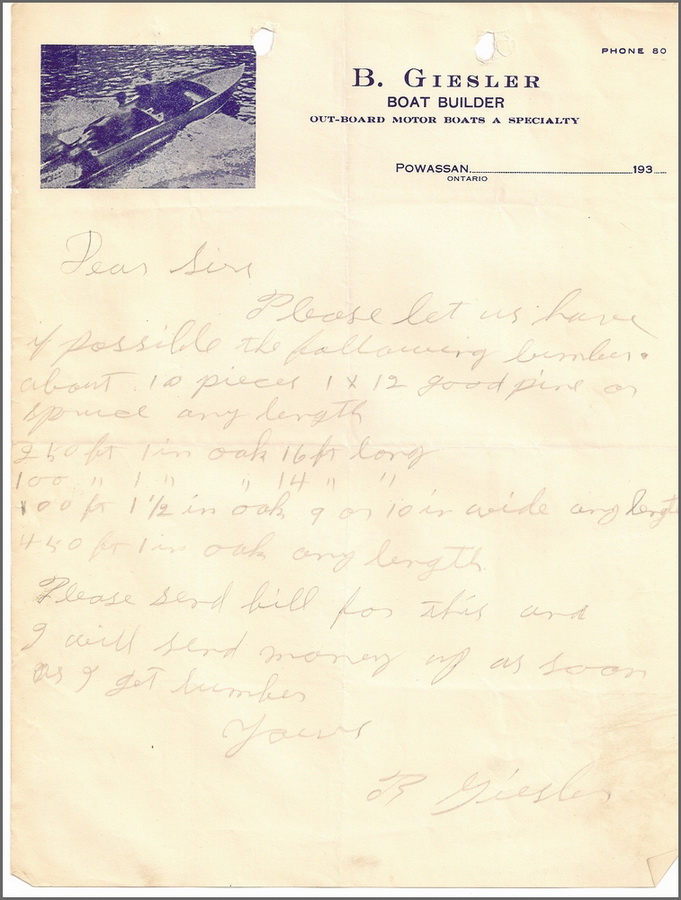 PHONE 80
B. GIESLER
BOAT BUILDER
OUT-BOARD MOTOR BOATS A SPECIALTY
POWASSAN 193
ONTARIO
Dear Sirs
Please let us have
if possible the following lumber.
about 10 pieces 1 x 12 good pine or
spruce any length
250 ft 1 in oak 16 ft long
100 " 1 " " 14 " "
100 ft 1 1/2 in oak 9 or 10 in wide any length
450 ft 1 in oak any length
Please send bill for this and
I will send money up as soon
as I get lumber
Yours
B Giesler